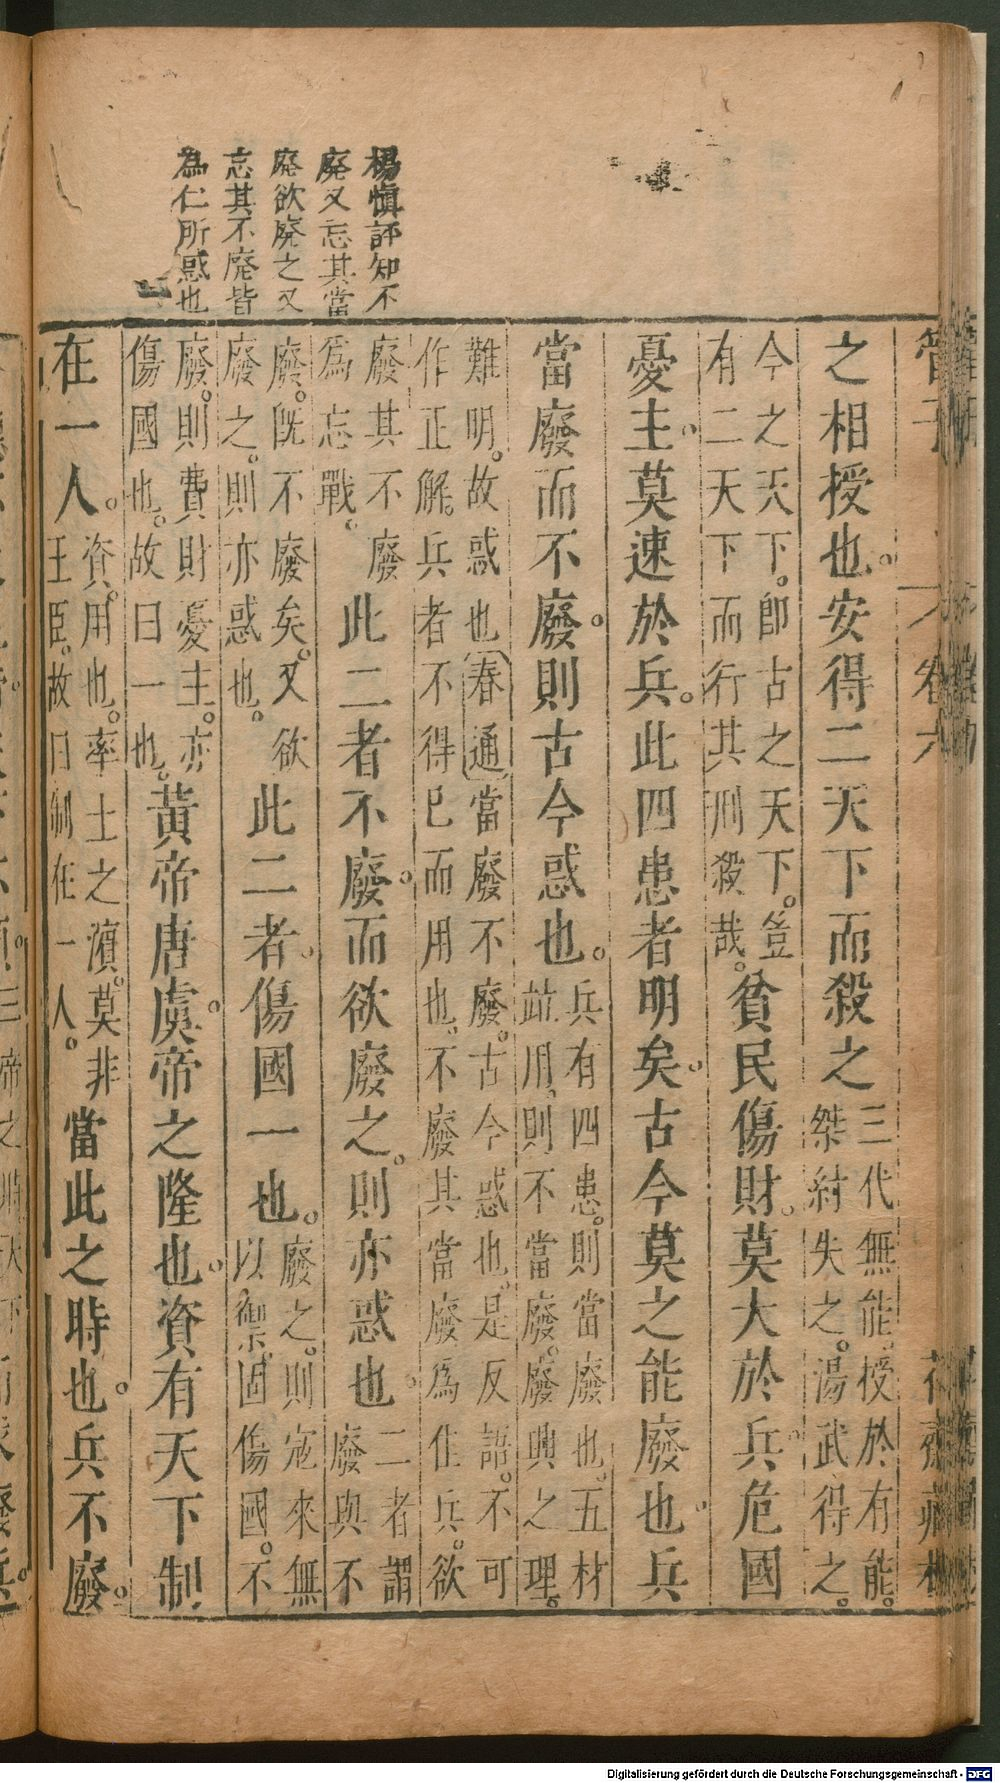 楊慎評知不
廢又忘其當
廢欲廢之又
忘其不廢皆
為仁所惑也
管子
卷六
花齋藏板
之相授也。安得二天下而殺之三代無能。授於有能。桀紂失之。湯武得之。
今之天下。卽古之天下。豈有二天下而行其刑殺哉。貧民傷財。莫大於兵。危國
憂主。莫速於兵。此四患者明矣。古今莫之能廢也。兵
當廢而不廢。則古今惑也。兵有四患。則當廢也。五材竝用。則不當廢。廢興之理。
難明。故惑也春通當廢不廢。古今惑也。是反語。不可作正解。兵者不得已而用也。不廢其當廢爲隹兵。欲
廢其不廢爲忘戰。此二者不廢。而欲廢之。則亦惑也。二者謂廢與不
廢。旣不廢矣。又欲廢之。則亦惑也。此二者。傷國一也。廢之。則寇來無以禦。固傷國。不
廢。則費財憂主。亦傷國也。故曰一也。黃帝唐虞。帝之隆也。資有天下制
在一人。資。用也。率土之濵。莫非王臣。故曰制在一人。當此之時也。兵不廢。
Digitalisierung gefördert durch die Deutsche Forschungsgemeinschaft - DFG